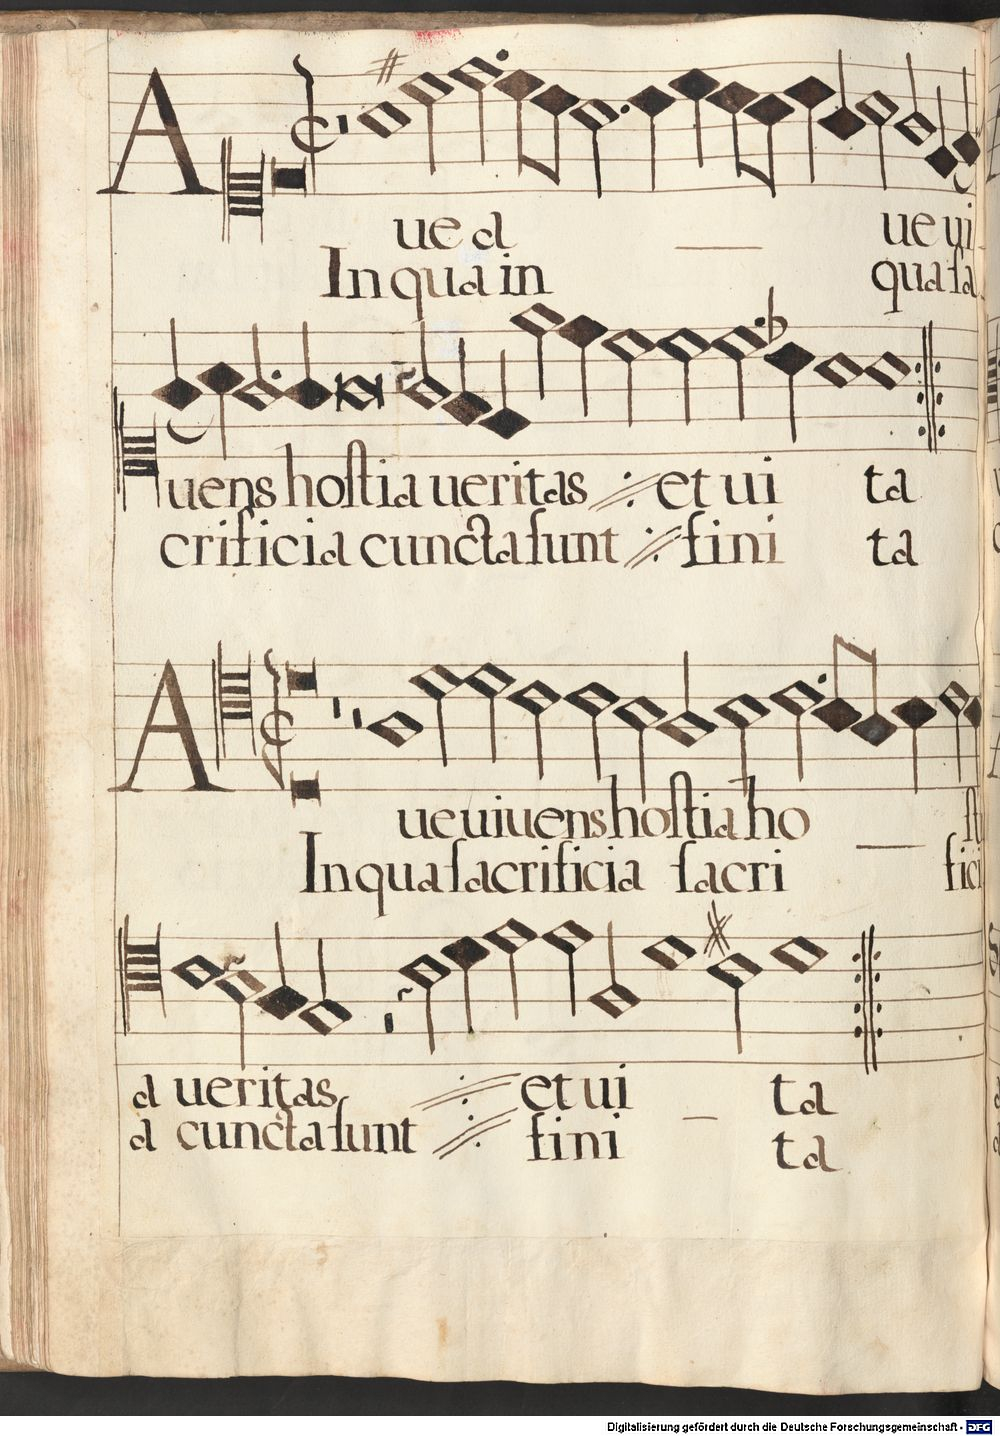 A ue a ue ui
In qua in qua ſa
uens hoſtia ueritas et ui ta
crificia cuncta ſunt fini ta
A ue uiuens hoſtia ho ſti
In qua ſacrificia ſacri fici
a ueritas et ui ta
a cuncta ſunt fini ta
Digitalisierung gefördert durch die Deutsche Forschungsgemeinschaft - DFG